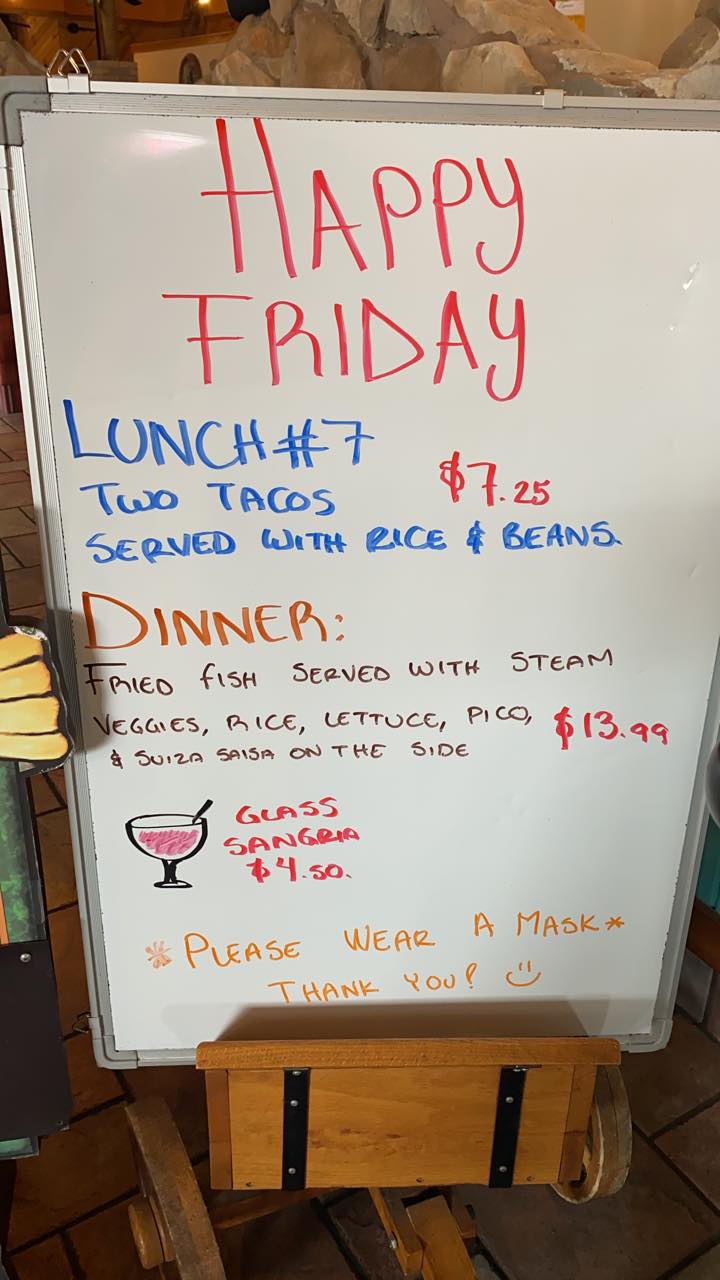 HAPPY
FRIDAY
LUNCH #7
TWO TACOS $7.25
SERVED WITH RICE & BEANS.
DINNER:
FRIED FISH SERVED WITH STEAM
VEGGIES, RICE, LETTUCE, PICO, $13.99
& SUIZA SALSA ON THE SIDE
GLASS
SANGRIA
$4.50.
*PLEASE WEAR A MASK*
THANK YOU!